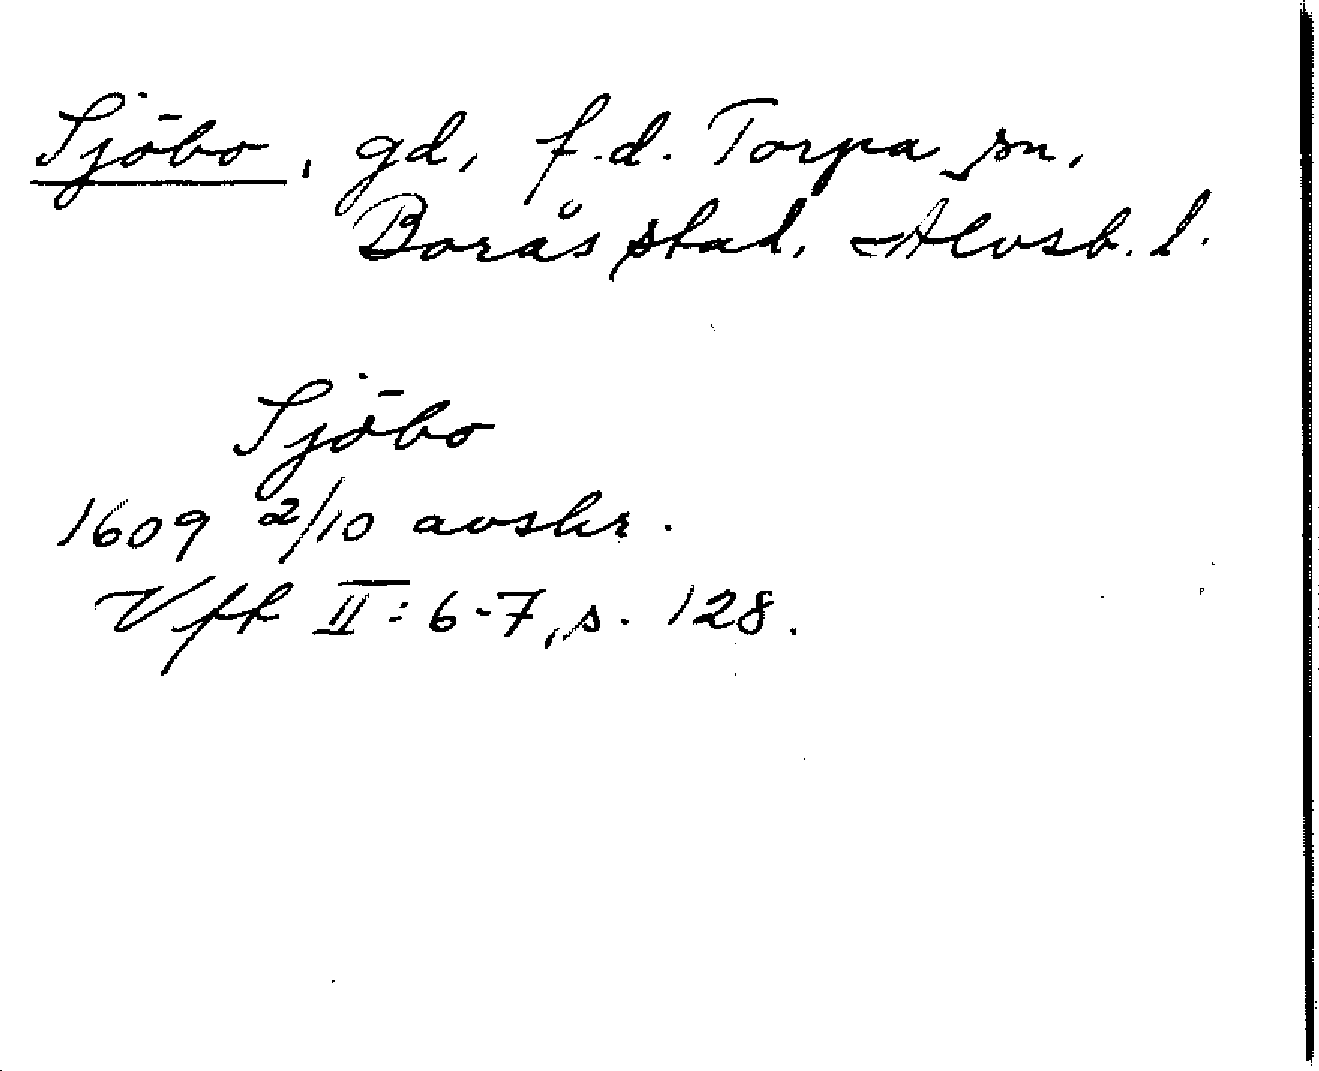 Sjöbo, gd, f.d. Torpa sn,
Borås stad, Älvsb. l.
Sjöbo
1609 2/10 avskr.
Vft II: 6-7, s. 128.